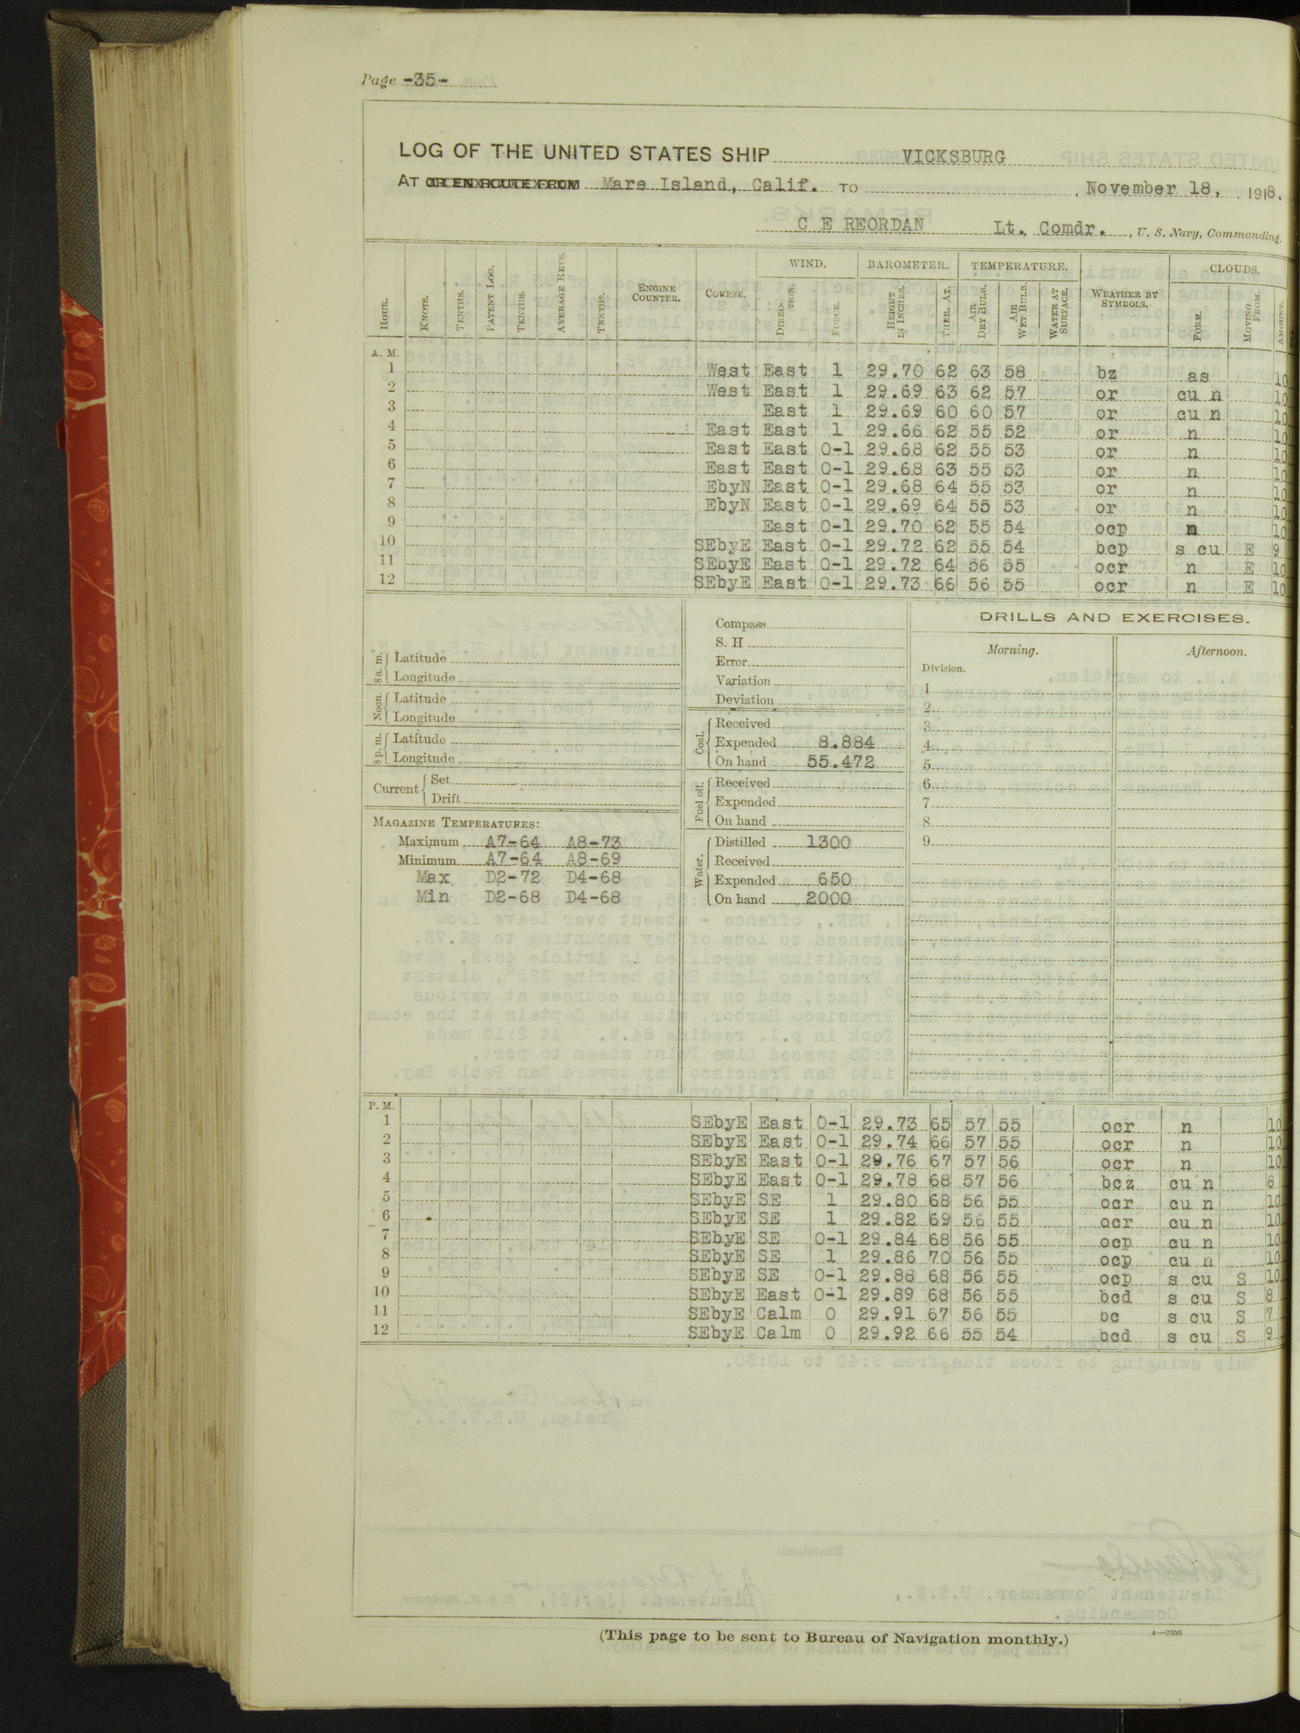 Page -35-
LOG OF THE UNITED STATES SHIP VICKSBURG
AT OR EN ROUTE FROM Mare Island, Calif. TO , November 18, 1918.
C E REORDAN Lt. Comdr. , U. S. Navy, Commanding.
WIND. BAROMETER. TEMPERATURE. CLOUDS.
HOUR. KNOTS. TENTHS. PATENT LOG. TENTHS. AVERAGE REVS. TENTHS. ENGINE COUNTER. COURSE. DIREC-TION. FORCE. HEIGHT IN INCHES. THER. AT. AIR DRY BULB. AIR WET BULB. WATER AT SURFACE. WEATHER BY SYMBOLS. FORM. MOVING FROM. AMOUNT.
A. M.
1 West East 1 29.70 62 63 58 bz as 10
2 West East 1 29.69 63 62 57 or cu n 10
3 East 1 29.69 60 60 57 or cu n 10
4 East East 1 29.66 62 55 52 or n 10
5 East East 0-1 29.68 62 55 53 or n 10
6 East East 0-1 29.68 63 55 53 or n 10
7 EbyN East 0-1 29.68 64 55 53 or n 10
8 EbyN East 0-1 29.69 64 55 53 or n 10
9 East 0-1 29.70 62 55 54 ocp n 10
10 SEbyE East 0-1 29.72 62 55 54 bcp s cu E 9
11 SEbyE East 0-1 29.72 64 56 55 ocr n E 10
12 SEbyE East 0-1 29.73 66 56 55 ocr n E 10
8 a. m. Latitude
Longitude
Noon. Latitude
Longitude
8 p. m. Latitude
Longitude
Current Set
Drift
MAGAZINE TEMPERATURES:
Maximum A7-64 A8-73
Minimum A7-64 A8-69
Max D2-72 D4-68
Min D2-68 D4-68
Compass
S. H
Error
Variation
Deviation
Coal. Received
Expended 8.884
On hand 55.472
Fuel oil. Received
Expended
On hand
Water. Distilled 1300
Received
Expended 650
On hand 2000
DRILLS AND EXERCISES.
Morning. Afternoon.
Division.
1
2
3
4
5
6
7
8
9
P. M.
1 SEbyE East 0-1 29.73 65 57 55 ocr n 10
2 SEbyE East 0-1 29.74 66 57 55 ocr n 10
3 SEbyE East 0-1 29.76 67 57 56 ocr n 10
4 SEbyE East 0-1 29.78 68 57 56 bcz cu n 8
5 SEbyE SE 1 29.80 68 56 55 ocr cu n 10
6 SEbyE SE 1 29.82 69 56 55 ocr cu n 10
7 SEbyE SE 0-1 29.84 68 56 55 ocp cu n 10
8 SEbyE SE 1 29.86 70 56 55 ocp cu n 10
9 SEbyE SE 0-1 29.88 68 56 55 ocp s cu S 10
10 SEbyE East 0-1 29.89 68 56 55 bcd s cu S 8
11 SEbyE Calm 0 29.91 67 56 55 bc s cu S 7
12 SEbyE Calm 0 29.92 66 55 54 bcd s cu S 9
(This page to be sent to Bureau of Navigation monthly.)